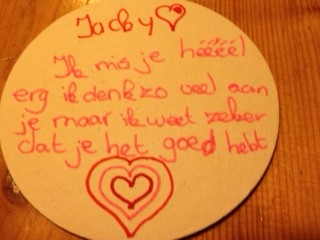 Jacky
Ik mis je héééél
erg ik denk zo veel aan
je maar ik weet zeker
dat je het goed hebt